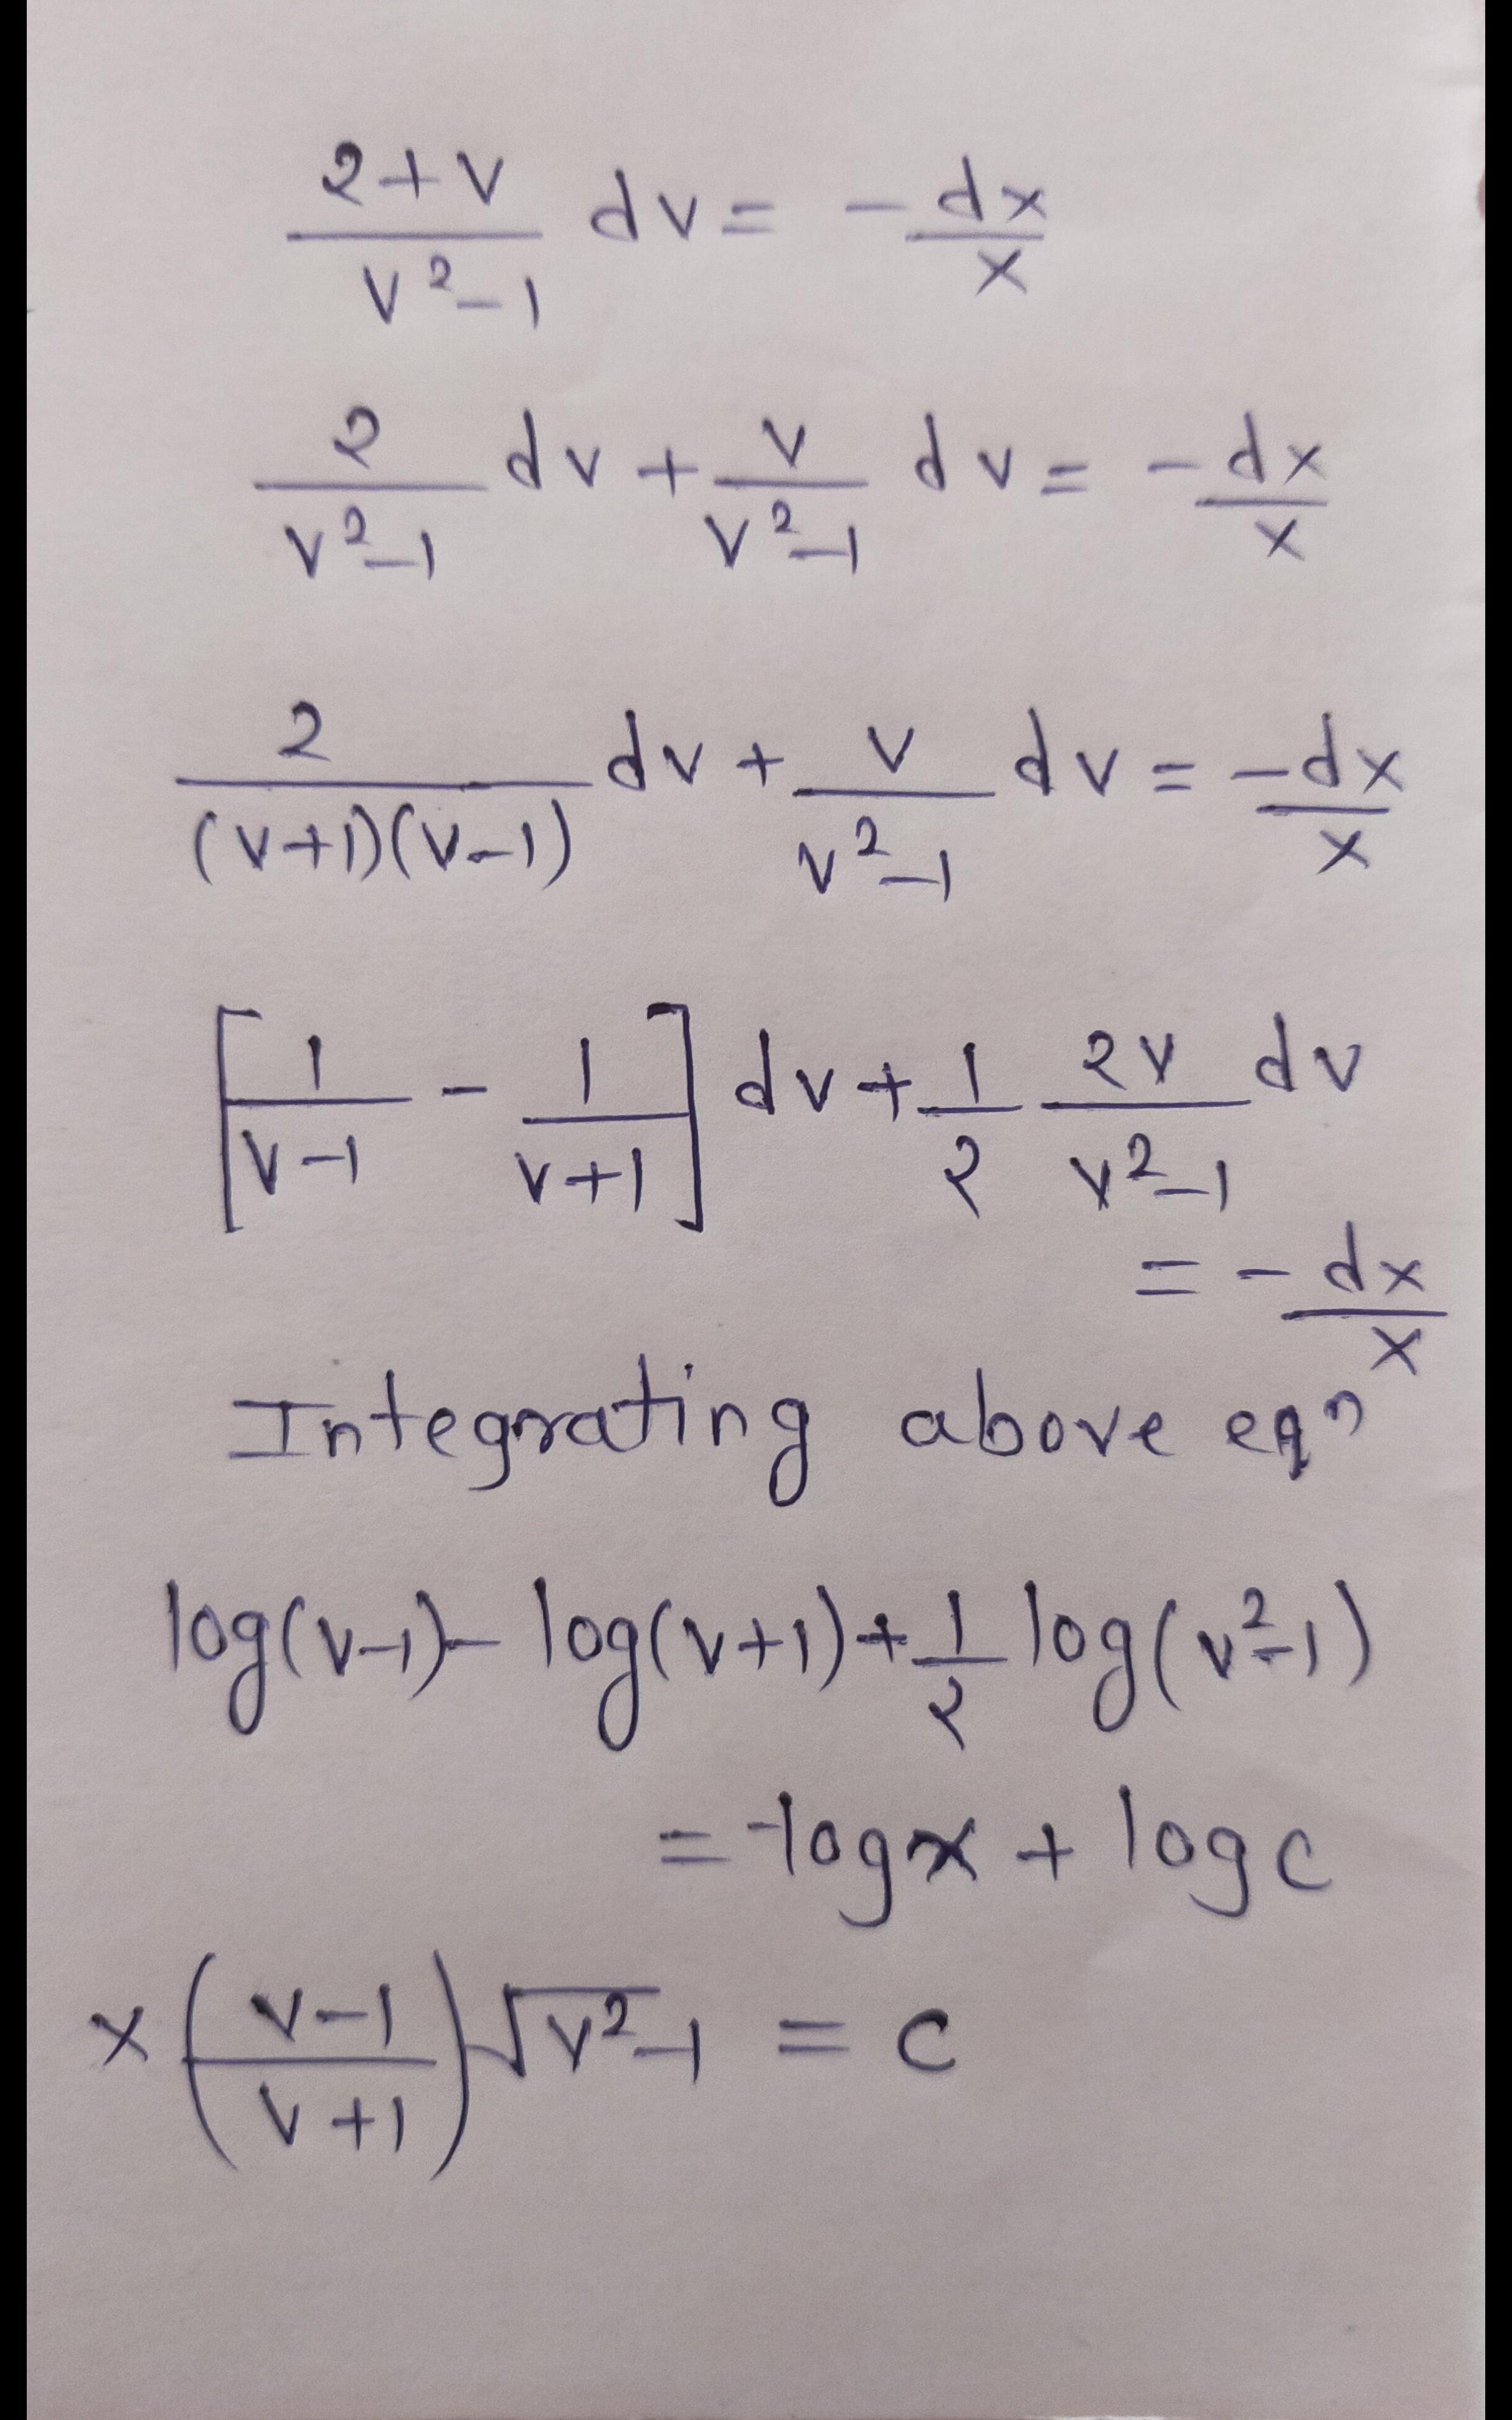 \frac{2+v}{v^2-1} dv = -\frac{dx}{x}
\frac{2}{v^2-1} dv + \frac{v}{v^2-1} dv = -\frac{dx}{x}
\frac{2}{(v+1)(v-1)} dv + \frac{v}{v^2-1} dv = -\frac{dx}{x}
\left[\frac{1}{v-1} - \frac{1}{v+1}\right] dv + \frac{1}{2} \frac{2v}{v^2-1} dv
= -\frac{dx}{x}
Integrating above eqn
log(v-1) - log(v+1) + \frac{1}{2} log(v^2-1)
= -log x + log c
x \left(\frac{v-1}{v+1}\right) \sqrt{v^2-1} = c